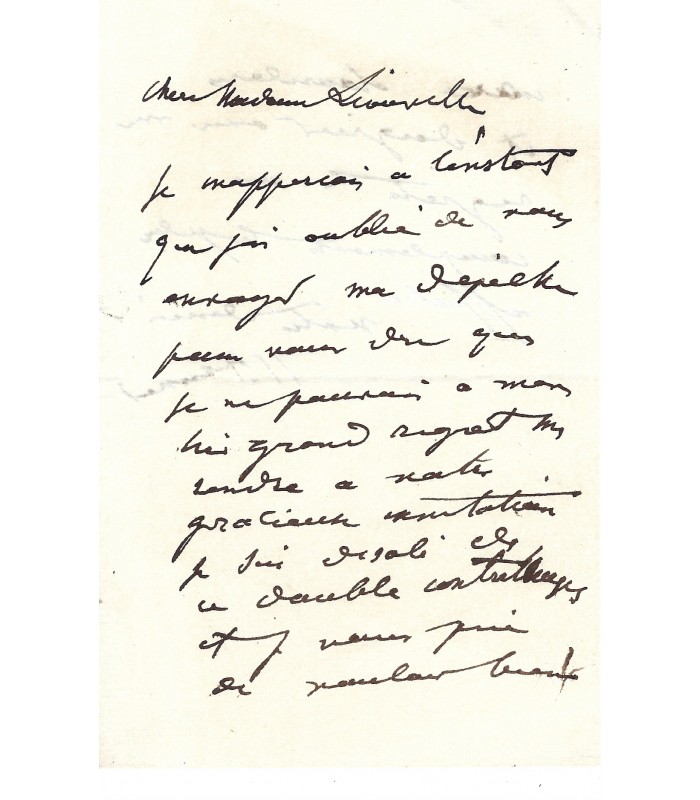 chère Madame Liouville
Je mapperçois a l'instant
que jai oublié de vous
envoyer ma depeche
pour vous dire que
je ne pouvais a mon
très grand regret me
rendre a votre
gracieuse invitation
je suis desolé de
ce double contretemps
et je vous prie
de vouloir bien